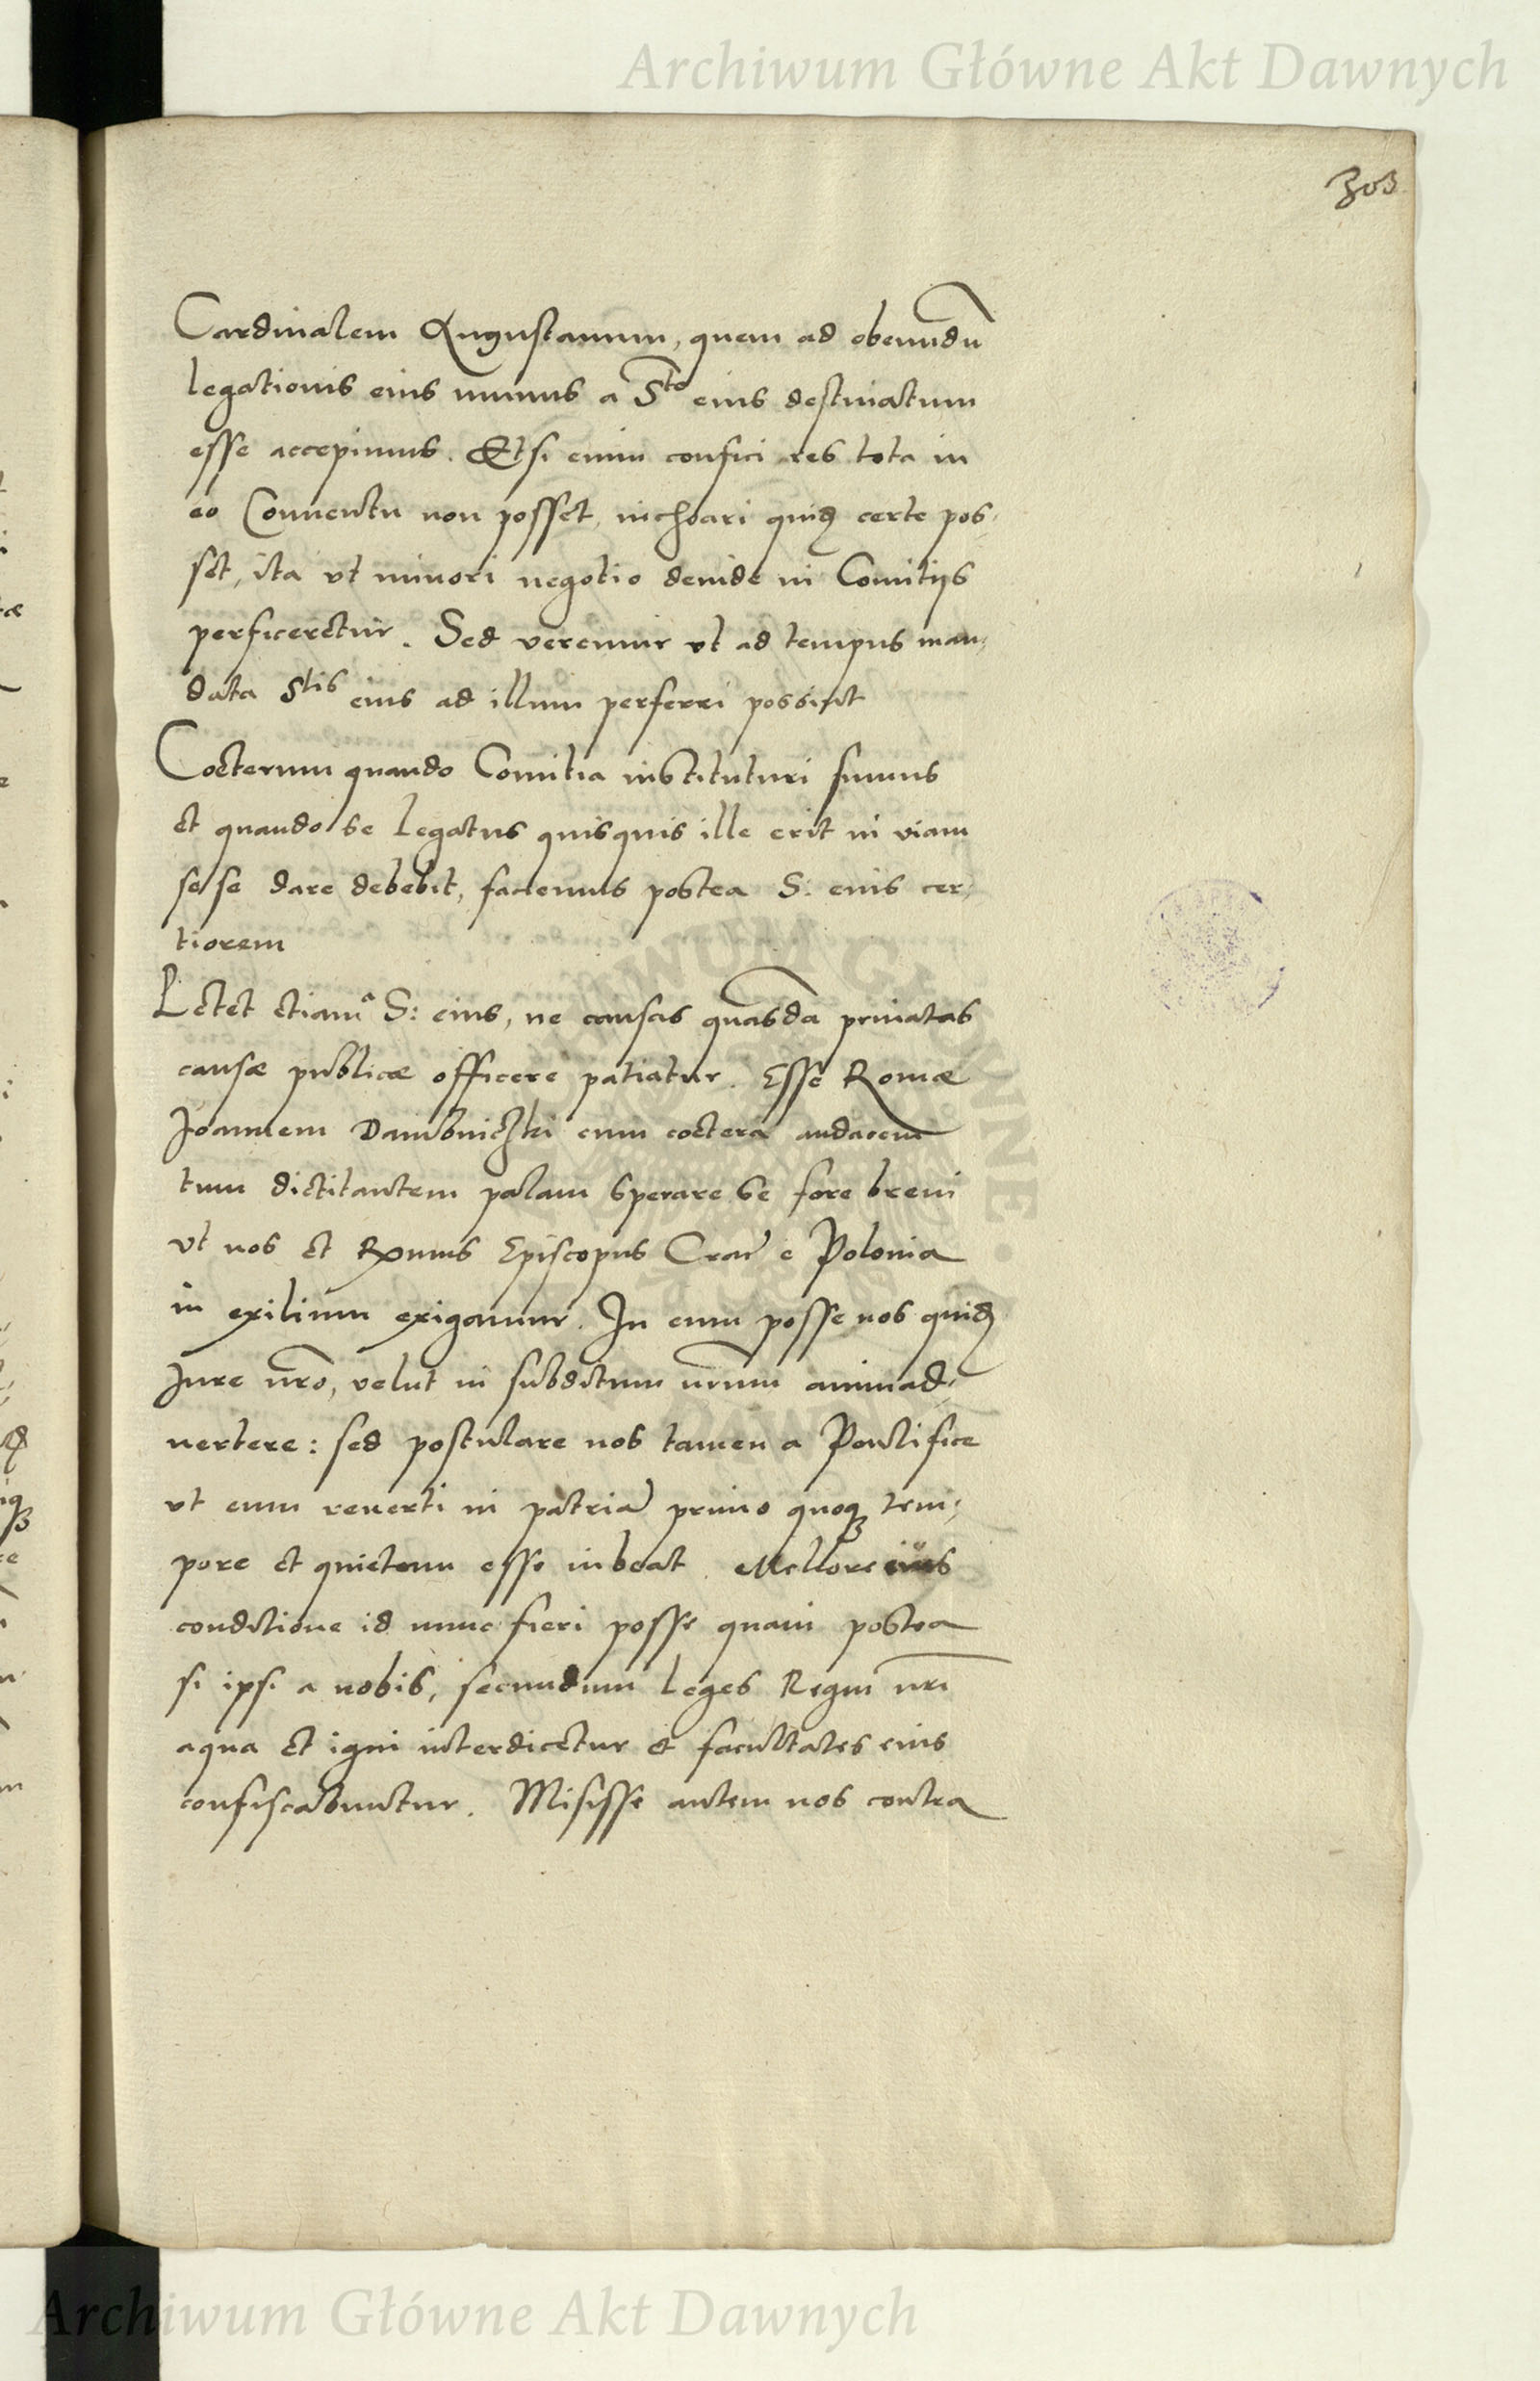 Archiwum Główne Akt Dawnych
303
Cardinalem Augustanum, quem ad obeundũ
legationis eius munus a Sᵗᵉ eius destinatum
esse accepimus. Etsi enim confici res tota in
eo Conuentu non posset, inchoari quidẽ certe pos-
set, ita vt minori negotio deinde in Comitijs
perficeretur. Sed veremur vt ad tempus man-
data Sᵗⁱˢ eius ad illum perferri possint
Cæterum quando Comitia instituturi sumus
et quando se Legatus quisquis ille erit in viam
sese dare debebit, faciemus postea S: eius cer-
tiorem
Petet etiam a S: eius, ne causas quasdã priuatas
causæ publicæ officere patiatur. Esse Romæ
Joannem Dambniczki cum cætera audacem
tum dictitantem palam sperare se fore breui
vt nos et Rx̄mus Episcopus Craƈ e Polonia
in exilium exigamur. In eum posse nos quidẽ
Jure nr̃o, velut in subditum nr̃um animad-
uertere: sed postulare nos tamen a Pontifice
vt eum reuerti in patriã primo quoqꝫ tem-
pore et quietum esse iubeat. Meliore eius
conditione id nunc fieri posse quam postea
si ipsi a nobis, secundum Leges Regni nr̃i
aqua et igni interdicetur et facultates eius
confiscabuntur. Misisse autem nos contra
ARCHIWUM GŁÓWNE AKT DAWNYCH
Archiwum Główne Akt Dawnych